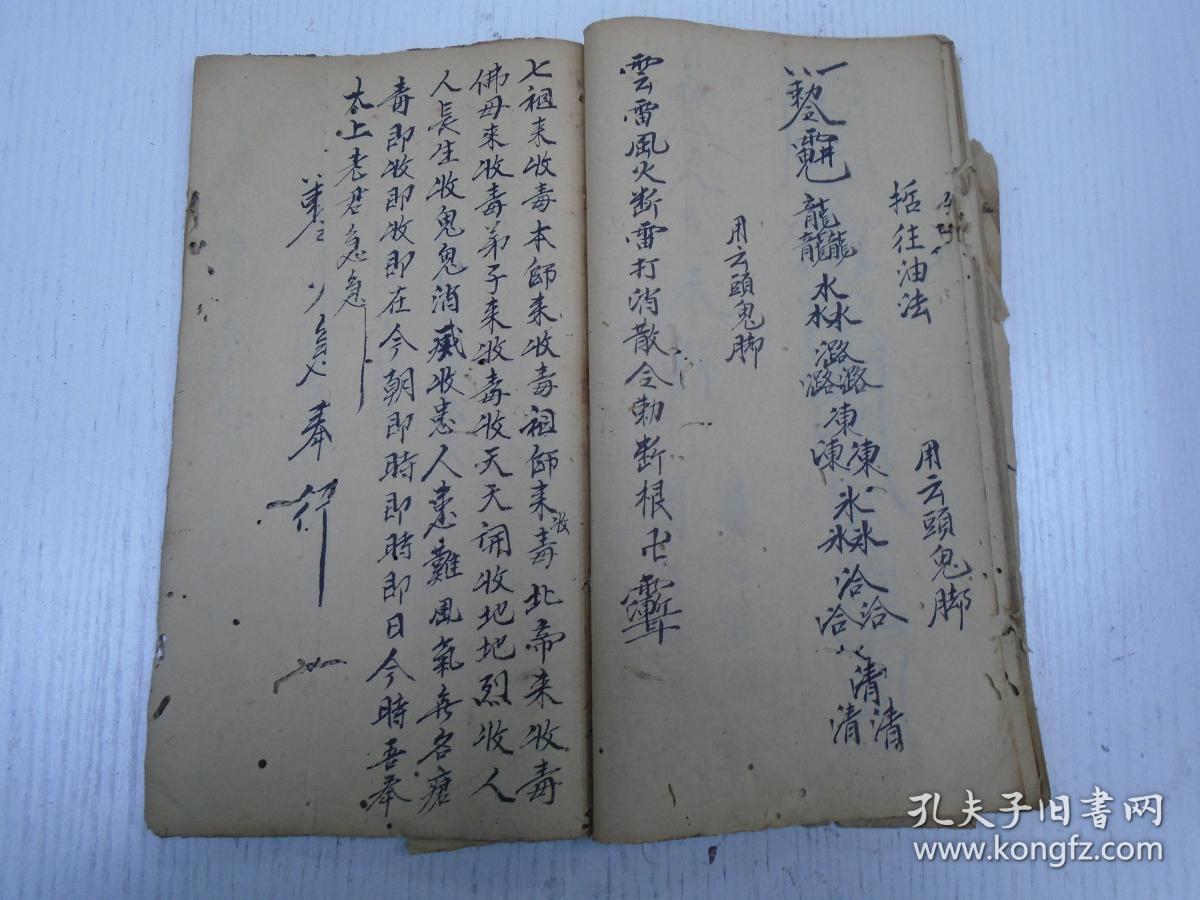 括往油法
用云頭鬼脚
龍龍龍水水水潞潞潞凍凍凍氷氷氷洽洽洽清清清
用云頭鬼脚
雲雷風火断雷打消散令勅断根卍
七祖来收毒本師来收毒祖師来收毒北帝来收毒
佛母来收毒弟子来收毒收天天開收地地烈收人
人長生收鬼鬼消滅收患人患難風氣無名瘡
毒即收即收即在今朝即時即時即日今時吾奉
太上老君急急
奉行
孔夫子旧书网
www.kongfz.com